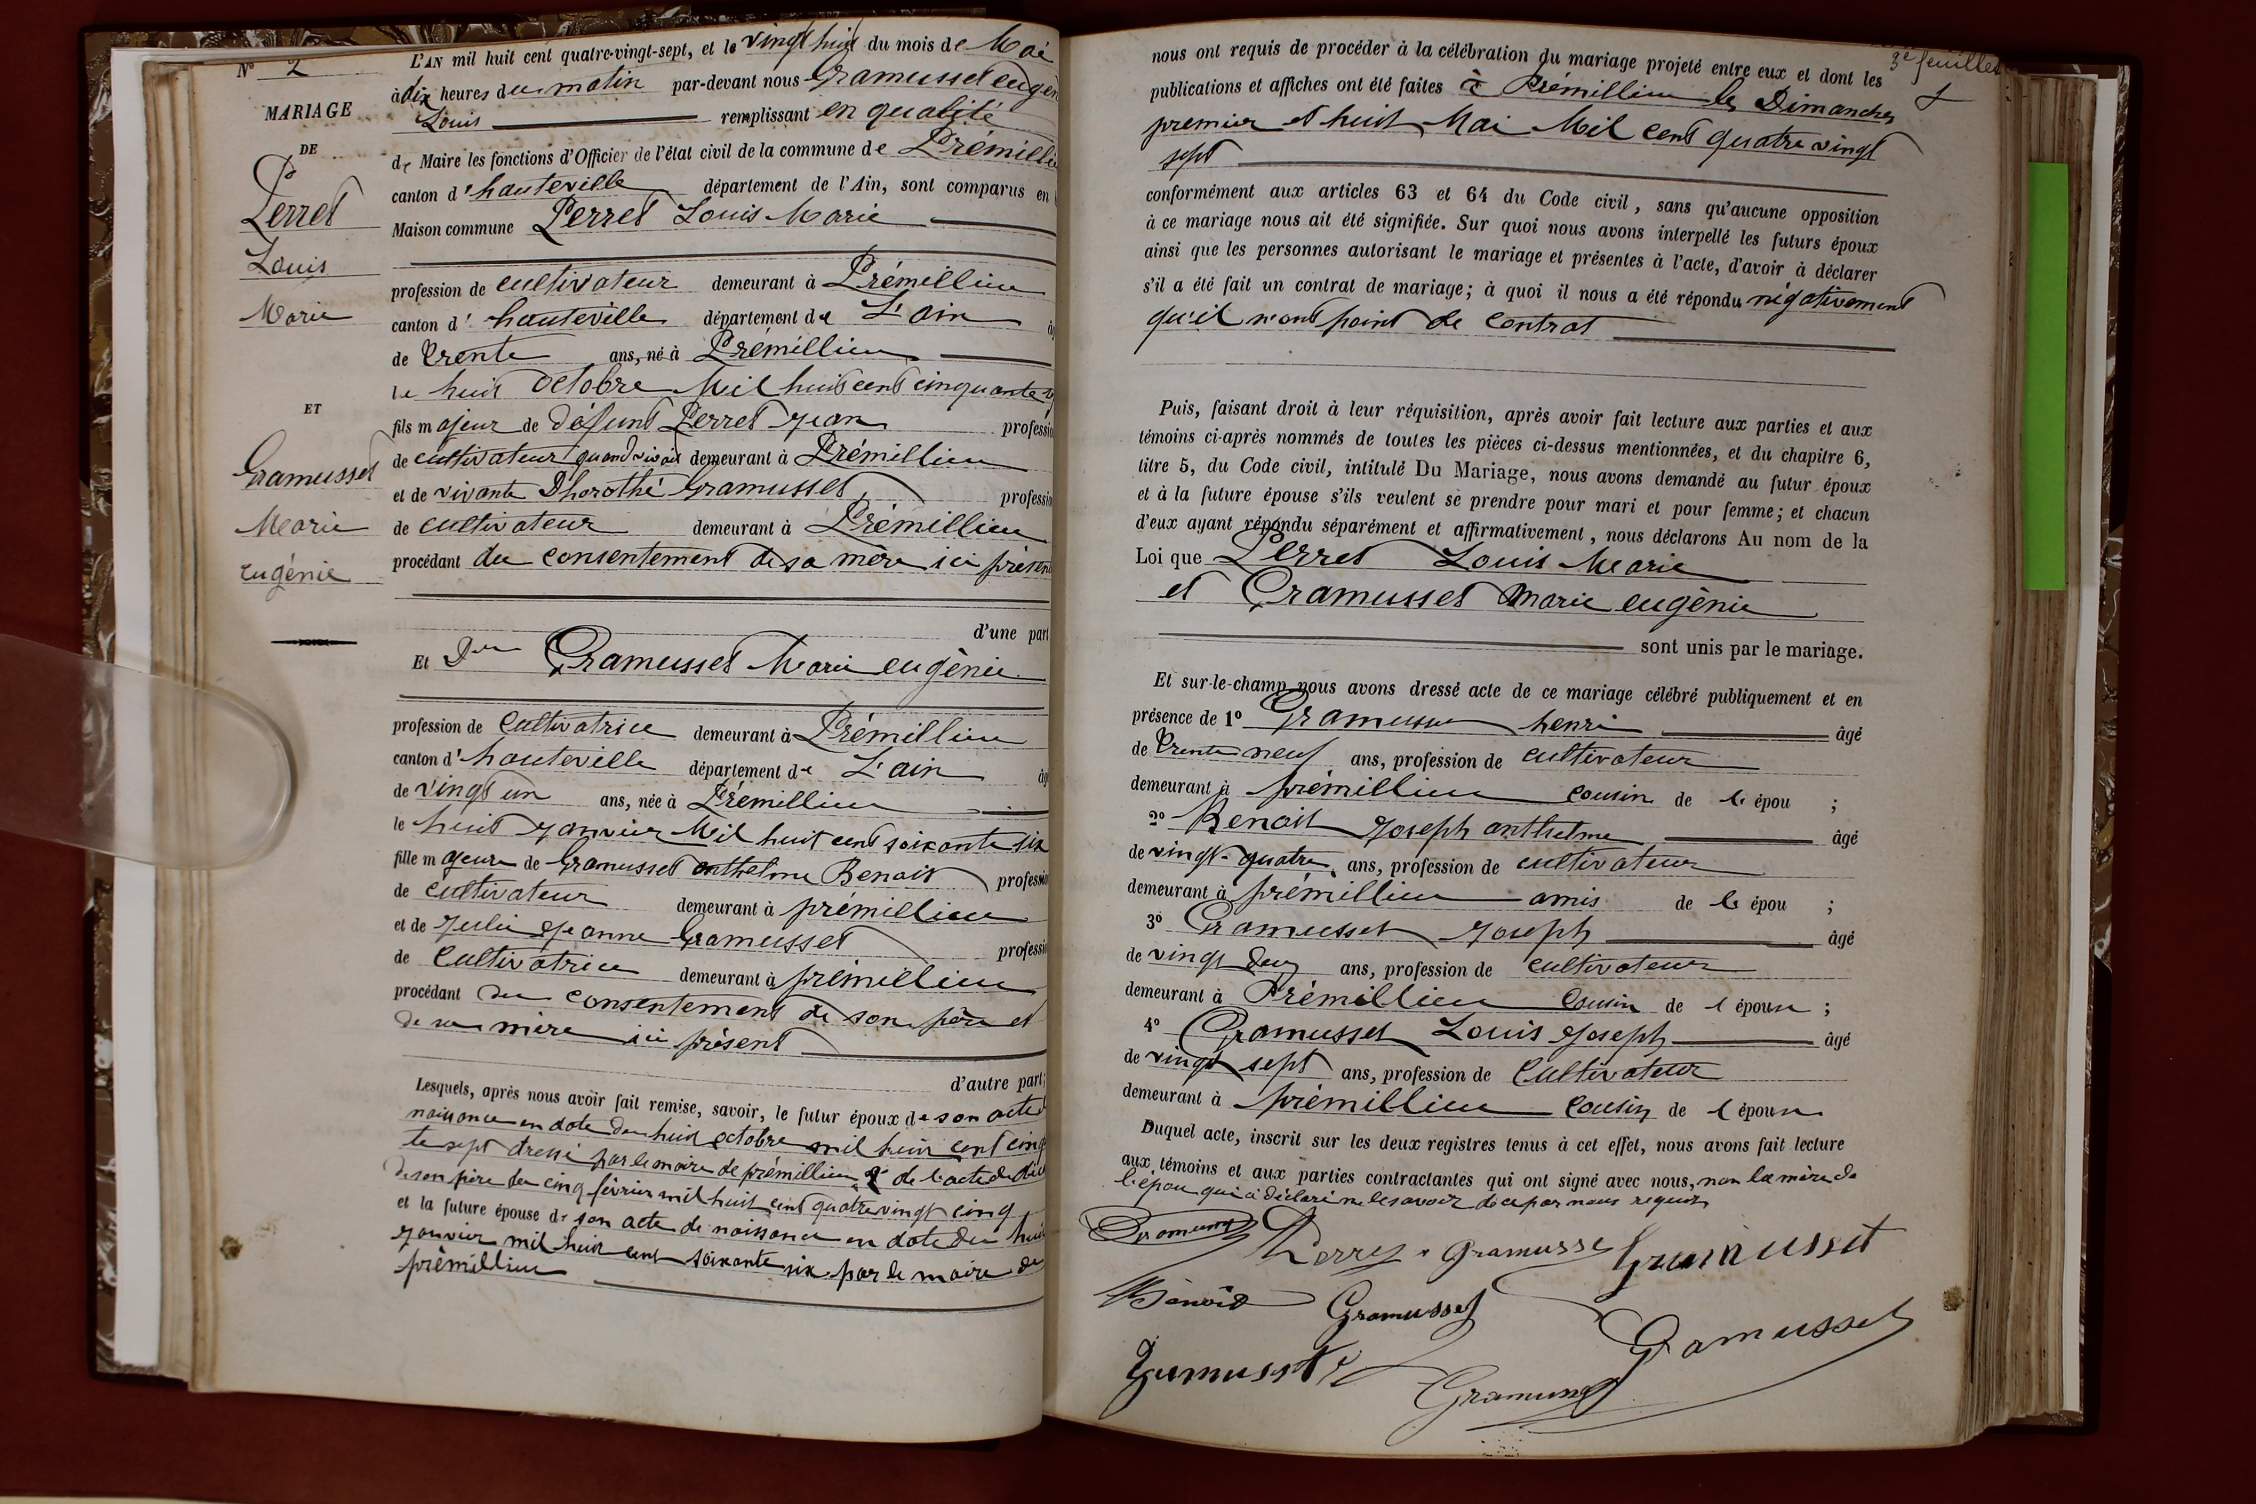 N° 2
MARIAGE
DE
Perret
Louis
Marie
ET
Gramusset
Marie
eugénie
L'AN mil huit cent quatre-vingt-sept, et le vingt huit du mois de Mai
à dix heures du matin par-devant nous Gramusset eugèn
Louis remplissant en qualité
de Maire les fonctions d'Officier de l'état civil de la commune de Prémillie
canton d'hauteville département de l'Ain, sont comparus en
Maison commune Perret Louis Marie
profession de cultivateur demeurant à Prémillieu
canton d' hauteville département de L'ain
de trente ans, né à Prémillieu
le huit octobre Mil huit cent cinquante
fils majeur de défunt Perret jean professio
de cultivateur quand vivait demeurant à Prémillieu
et de vivante Dhorothé Gramusset profession
de cultivateur demeurant à Prémillieu
procédant du consentement de sa mère ici présen
d'une part
Et Dlle Gramusset Marie eugènie
profession de cultivatrice demeurant à Prémillieu
canton d'hauteville département de L'ain âg
de vingt un ans, née à Prémillieu
le huit janvier Mil huit cent soixante six
fille majeure de Gramusset anthelme Benoit profession
de cultivateur demeurant à prémillieu
et de julie jeanne Gramusset professi
de cultivatrice demeurant à prémillieu
procédant du consentement de son père et
de sa mère ici présent
d'autre part;
Lesquels, après nous avoir fait remise, savoir, le futur époux de son acte d
naissance en date du huit octobre mil huit cent cinq
te sept dressé par le maire de prémillieu & de l'acte de déc
de son père du cinq février mil huit cent quatre vingt cinq
et la future épouse de son acte de naissance en date du huit
janvier mil huit cent soixante six par le maire de
prémillieu
3e feuillet
nous ont requis de procéder à la célébration du mariage projeté entre eux et dont les
publications et affiches ont été faites à Prémillieu les Dimanches
premier et huit Mai Mil cent quatre vingt
sept
conformément aux articles 63 et 64 du Code civil, sans qu'aucune opposition
à ce mariage nous ait été signifiée. Sur quoi nous avons interpellé les futurs époux
ainsi que les personnes autorisant le mariage et présentes à l'acte, d'avoir à déclarer
s'il a été fait un contrat de mariage; à quoi il nous a été répondu négativement
qu'il n'ont point de contrat
Puis, faisant droit à leur réquisition, après avoir fait lecture aux parties et aux
témoins ci-après nommés de toutes les pièces ci-dessus mentionnées, et du chapitre 6,
titre 5, du Code civil, intitulé Du Mariage, nous avons demandé au futur époux
et à la future épouse s'ils veulent se prendre pour mari et pour femme; et chacun
d'eux ayant répondu séparément et affirmativement, nous déclarons Au nom de la
Loi que Perret Louis Marie
et Gramusset Marie eugènie
sont unis par le mariage.
Et sur-le-champ nous avons dressé acte de ce mariage célébré publiquement et en
présence de 1° Gramusset henri âgé
de trente neuf ans, profession de cultivateur
demeurant à prémillieu cousin de l' épou ;
2° Benoit joseph anthelme âgé
de vingt-quatre ans, profession de cultivateur
demeurant à prémillieu amis de l' épou ;
3° Gramusset joseph âgé
de vingt deux ans, profession de cultivateur
demeurant à Prémillieu cousin de l'épouse ;
4° Gramusset Louis joseph âgé
de vingt sept ans, profession de cultivateur
demeurant à prémillieu cousin de l'épouse
Duquel acte, inscrit sur les deux registres tenus à cet effet, nous avons fait lecture
aux témoins et aux parties contractantes qui ont signé avec nous, non la mère de
l'épou qui a déclaré ne le savoir de ce par nous requis
Gramusset Perret Gramusset Gramusset
Benoit Gramusset Gramusset
Gramusset Gramusset